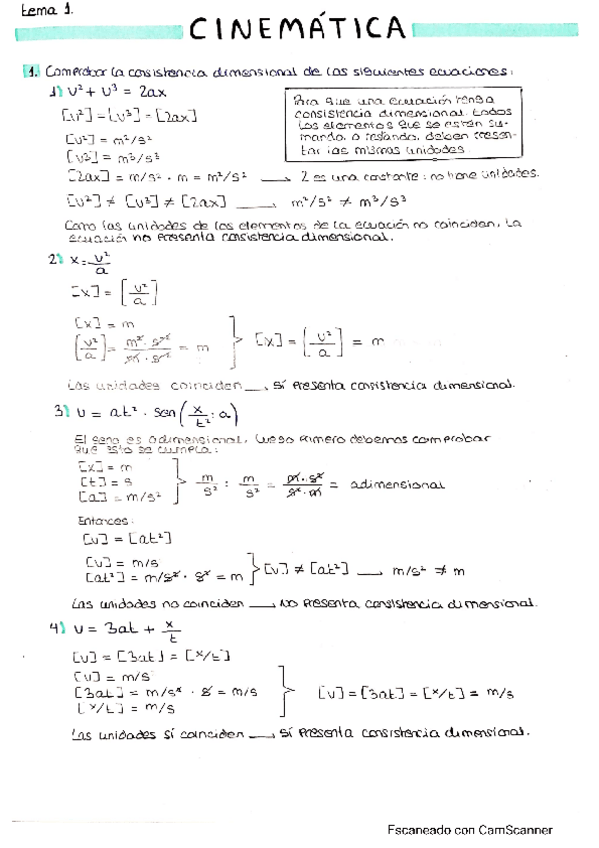 tema 1.
CINEMÁTICA
1. Comprobar la consistencia dimensional de las siguientes ecuaciones:
1) v² + v³ = 2ax
[v²] = [v³] = [2ax]
Para que una ecuación tenga
consistencia dimensional, todos
los elementos que se estén su-
mando o restando, deben presen-
tar las mismas unidades.
[v²] = m²/s²
[v³] = m³/s³
[2ax] = m/s² · m = m²/s² → 2 es una constante: no tiene unidades.
[v²] ≠ [v³] ≠ [2ax] → m²/s² ≠ m³/s³
Como las unidades de los elementos de la ecuación no coinciden, la
ecuación no presenta consistencia dimensional.
2) x = v²/a
[x] = [v²/a]
[x] = m
[v²/a] = m² · s⁻²/m · s⁻² = m } [x] = [v²/a] = m
Las unidades coinciden → sí presenta consistencia dimensional.
3) v = at² · sen(x/t² : a)
El seno es adimensional, luego primero debemos comprobar
que esto se cumpla:
[x] = m
[t] = s
[a] = m/s² } m/s² : m/s² = m · s²/s² · m = adimensional
Entonces:
[v] = [at²]
[v] = m/s
[at²] = m/s² · s² = m } [v] ≠ [at²] → m/s² ≠ m
Las unidades no coinciden → No presenta consistencia dimensional.
4) v = 3at + x/t
[v] = [3at] = [x/t]
[v] = m/s
[3at] = m/s² · s = m/s
[x/t] = m/s } [v] = [3at] = [x/t] = m/s
Las unidades sí coinciden → sí presenta consistencia dimensional.
Escaneado con CamScanner